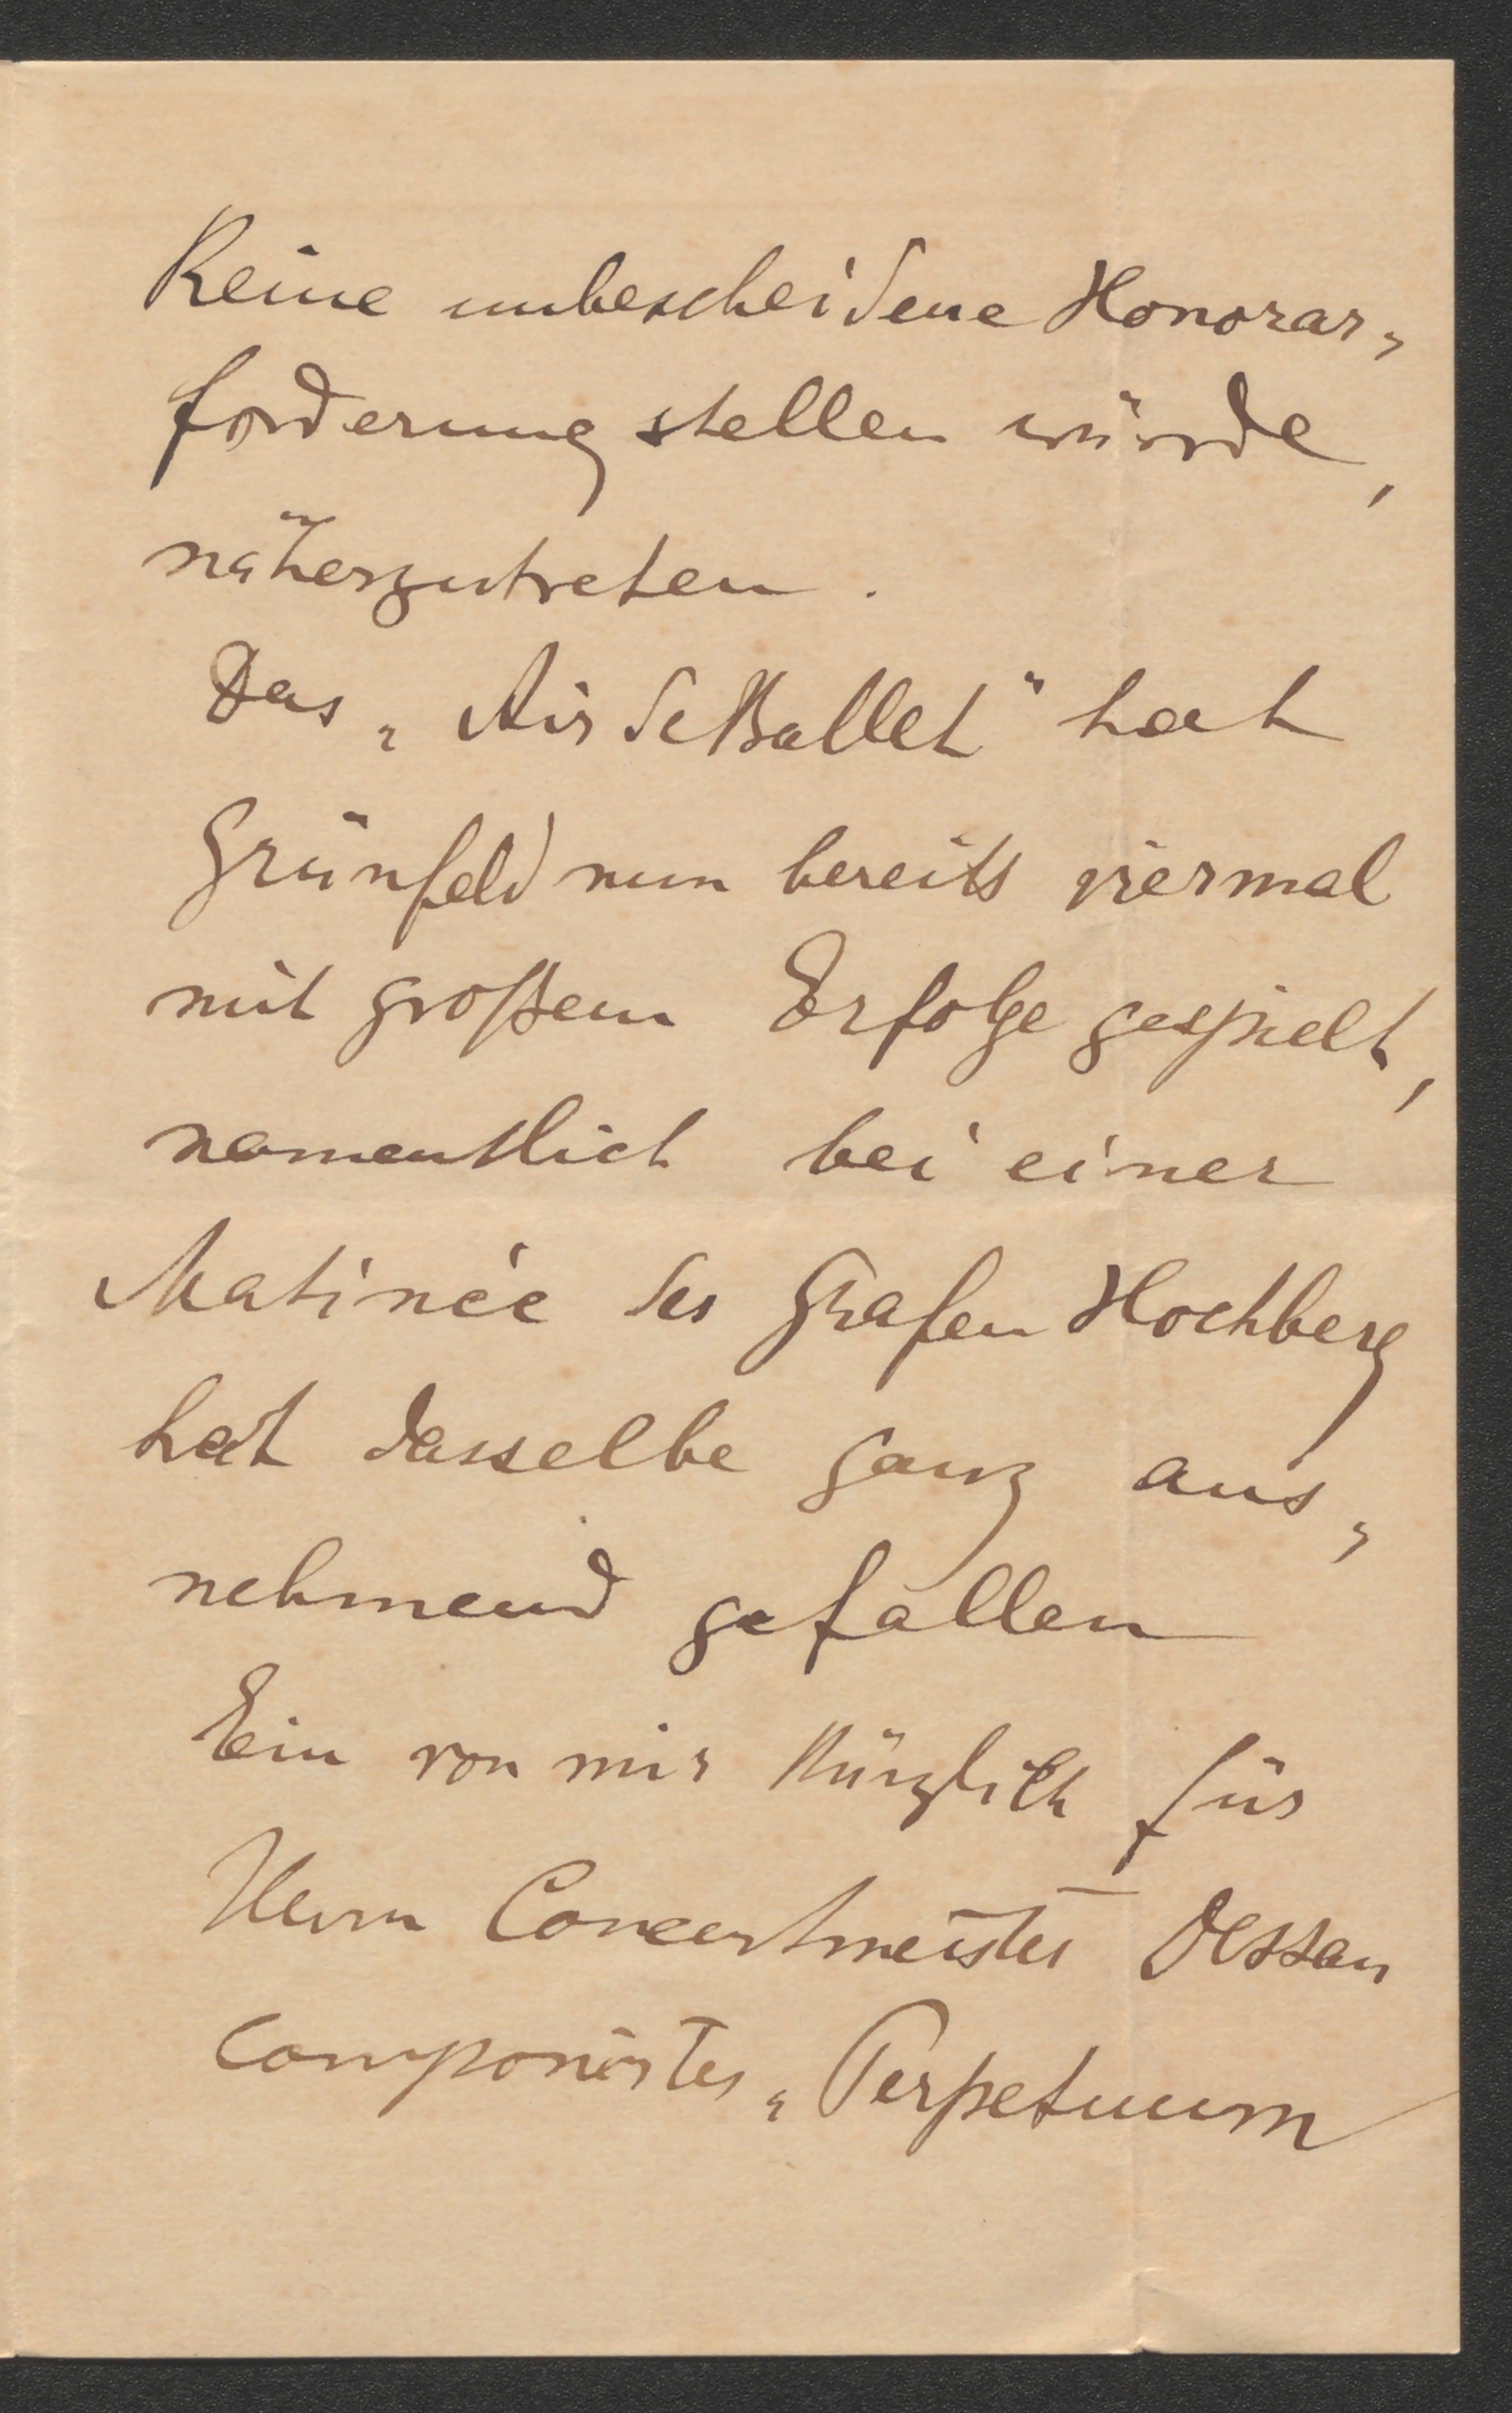 Keine unbescheidene Honorar-
forderung stellen würde,
näherzutreten.
Das „Air de Ballet" hat
Grünfeld nun bereits viermal
mit großem Erfolge gespielt,
namentlich bei einer
Matinée des Grafen Hochberg
hat dasselbe ganz aus-
nehmend gefallen
Ein von mir kürzlich für
Herrn Concertmeister Dessau
componirtes „Perpetuum